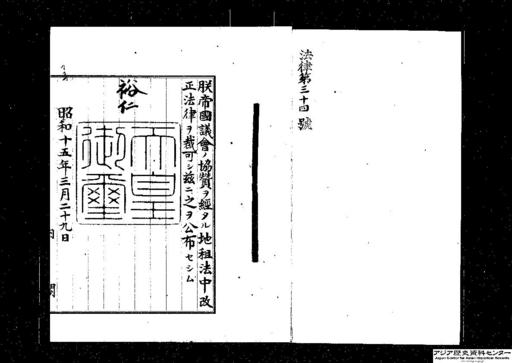 法律第三十四號
朕帝國議會ノ協賛ヲ經タル地租法中改
正法律ヲ裁可シ茲ニ之ヲ公布セシム
裕仁
天皇御璽
昭和十五年三月二十九日
アジア歴史資料センター
Japan Center for Asian Historical Records